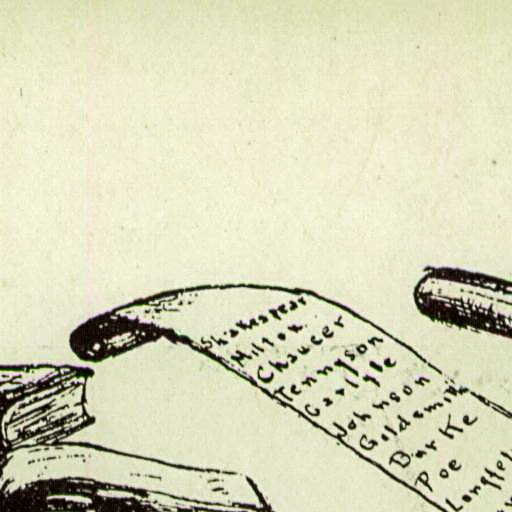 Shakespear
Milton
Chaucer
Tennyson
Carlyle
Johnson
Goldsmith
Burke
Poe
Longfel